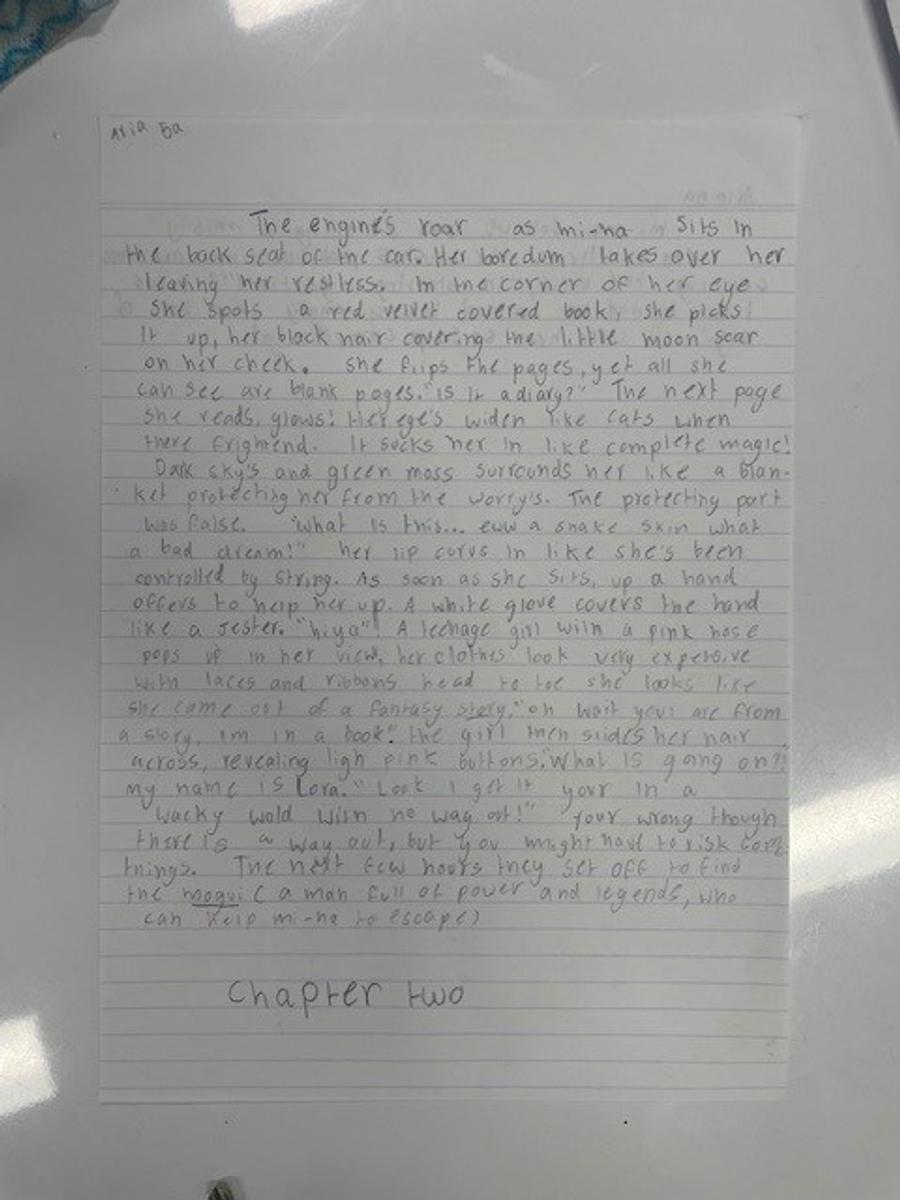 Aria 5a
The engine's roar as mi-na sits in
the back seat of the car. Her boredum takes over her
leaving her restless. In the corner of her eye
she spots a red velvet covered book, she picks
it up, her black hair covering the little moon scar
on her cheek. she flips the pages, yet all she
can see are blank pages. "is it a diary?" The next page
she reads, glows! Her eye's widen like cats when
there frightend. It sucks her in like complete magic!
Dark sky's and green moss surrounds her like a blan-
ket protecting her from the worry's. The protecting part
was false. "what is this... eww a snake skin what
a bad dream!" her lip corvs in like she's been
controlled by string. As soon as she sits, up a hand
offers to help her up. A white glove covers the hand
like a Jester. "hiya"! A teenage girl with a pink nose
pops up in her view, her clothes look very expensive
with laces and ribbons head to toe she looks like
she came out of a fantasy story. "oh wait your are from
a story, im in a book". the girl then slides her hair
across, revealing ligh pink buttons. "What is going on?!
my name is Lora." "Look I get it your in a
wacky wold with no way out!" your wrong though
there is a way out, but you might have to risk
things. The next few hours they set off to find
the mogui (a man full of power and legends, who
can help mi-na to escape)
Chapter two